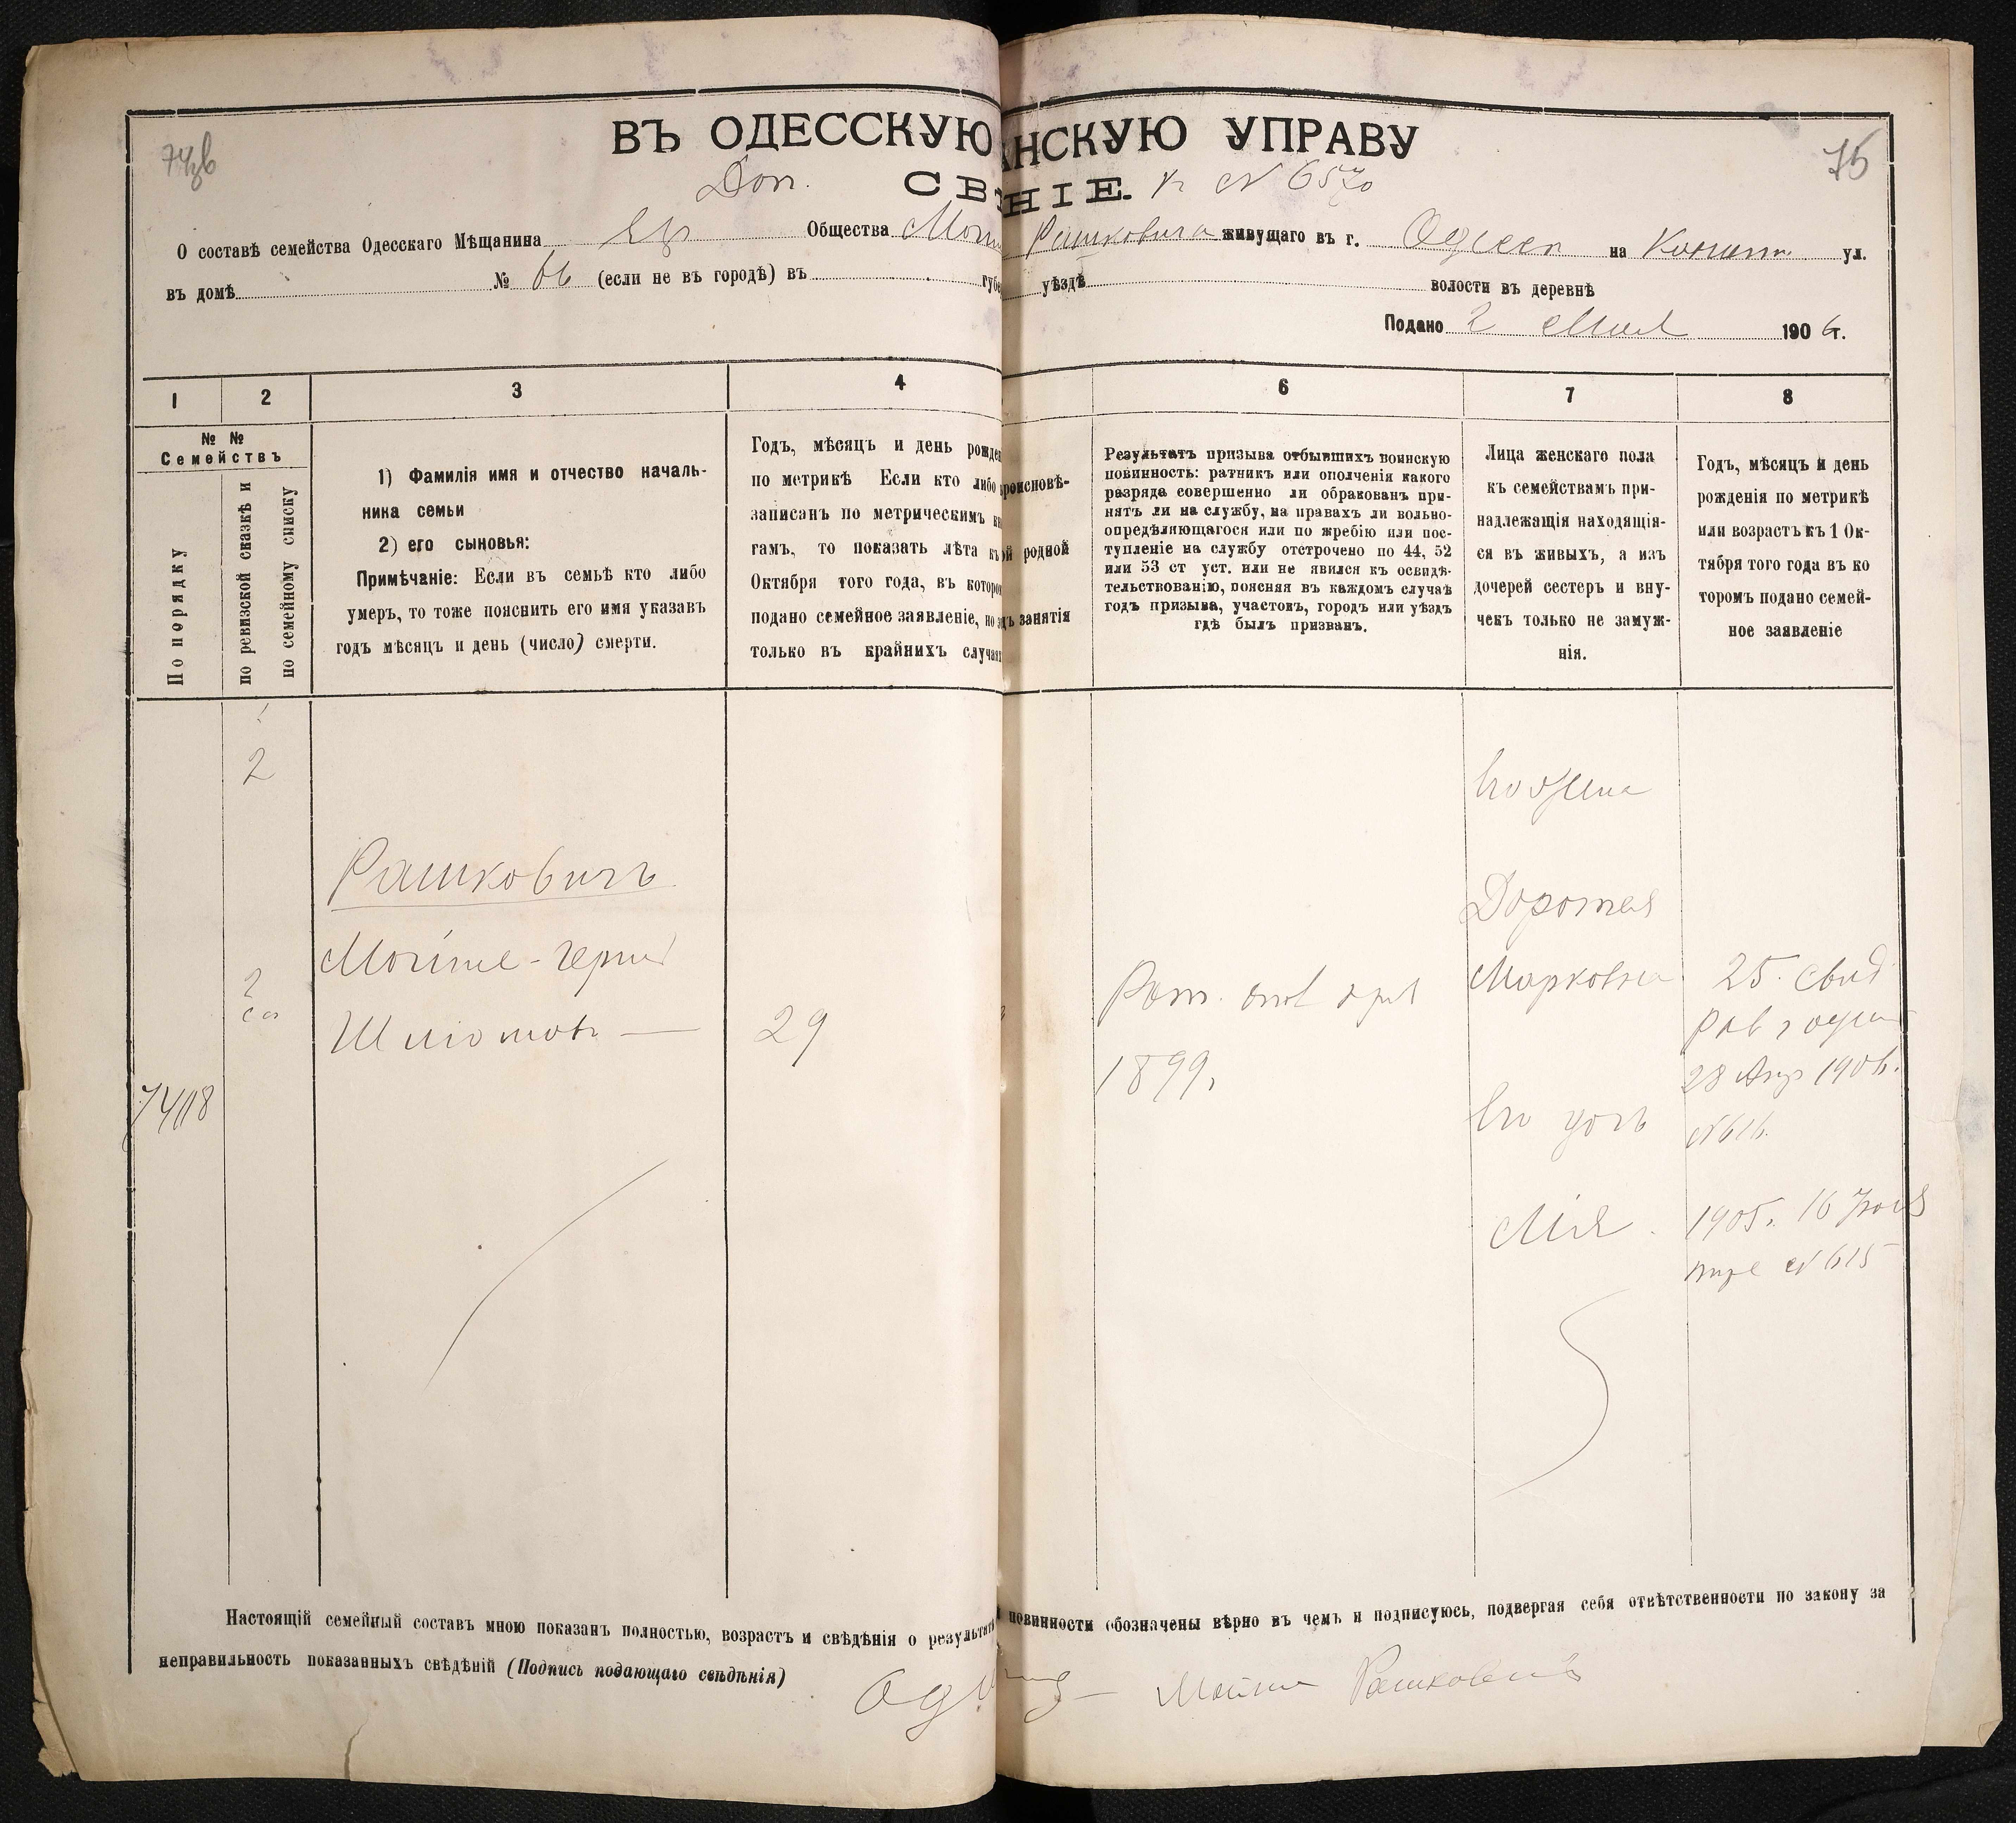 ВЪ ОДЕССКУЮ АНСКУЮ УПРАВУ
75
Доп. СВѢ НІЕ. к № 6570
О составѣ семейства Одесскаго Мѣщанина Евр Общества Мош Рашковича живущаго въ г. Одессѣ на ул.
въ домѣ № 66 (если не въ городѣ) въ губе уѣздѣ волости въ деревнѣ
Подано 2 Мая 1906 г.
1 2 3 4 6 7 8
№ № Семействъ
По порядку
по ревизской сказкѣ и
по семейному списку
1) Фамилія имя и отчество началь-
ника семьи
2) его сыновья:
Примѣчаніе: Если въ семьѣ кто либо
умеръ, то тоже пояснить его имя указавъ
годъ мѣсяцъ и день (число) смерти.
Годъ, мѣсяцъ и день рожде
по метрикѣ Если кто либо
записанъ по метрическимъ кн
гамъ, то показать лѣта къ
Октября того года, въ которо
подано семейное заявленіе, но
только въ крайнихъ случая
роисповѣ-
ой родной
дъ занятія
Результатъ призыва отбывшихъ воинскую
повинность: ратникъ или ополченія какого
разряда совершенно ли обракованъ при-
нятъ ли на службу, на правахъ ли вольно-
опредѣляющагося или по жребію или пос-
тупленіе на службу отсрочено по 44, 52
или 53 ст уст. или не явился къ освидѣ-
тельствованію, поясняя въ каждомъ случаѣ
годъ призыва, участокъ, городъ или уѣздъ
гдѣ былъ призванъ.
Лица женскаго пола
къ семействамъ при-
надлежащія находящія-
ся въ живыхъ, а изъ
дочерей сестеръ и вну-
чекъ только не замуж-
нія.
Годъ, мѣсяцъ и день
рожденія по метрикѣ
или возрастъ къ 1 Ок-
тября того года въ ко
торомъ подано семей-
ное заявленіе
2
Его жена
Рашковичъ
Доротея
Мойше-Герш
Марковна
25. свид
2
Рат.
Шліомовъ —
29
1899.
28 Апр 1906.
7418
Его дочь
№ 616.
Лія.
1905. 16
№ 615
Настоящій семейный составъ мною показанъ полностью, возрастъ и свѣдѣнія о результатѣ повинности обозначены вѣрно въ чемъ и подписуюсь, подвергая себя отвѣтственности по закону за
неправильность показанныхъ свѣдѣній (Подпись подающаго свѣдѣнія)
Рашкович